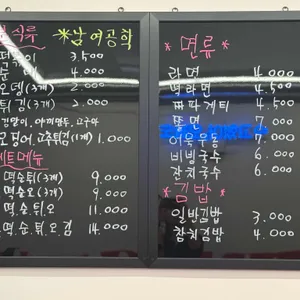 분식류 *남여공학
떡볶이 3.500
순대 4.000
오뎅(3개) 2.000
튀김(3개) 2.000
(김말이, 야끼만두, 고구마)
오징어, 고추튀김(1개) 1.000
세트메뉴
떡.순.튀(3개) 9.000
떡.순.오(3개) 9.000
떡.순.튀.오 11.000
떡.순.튀.오.김 14.000
*면류*
라면 4.000
떡라면 4.500
짜파게티 4.500
쫄면 7.000
어묵우동 7.000
비빔국수 6.000
잔치국수 6.000
*김밥*
일반김밥 3.000
참치김밥 4.000